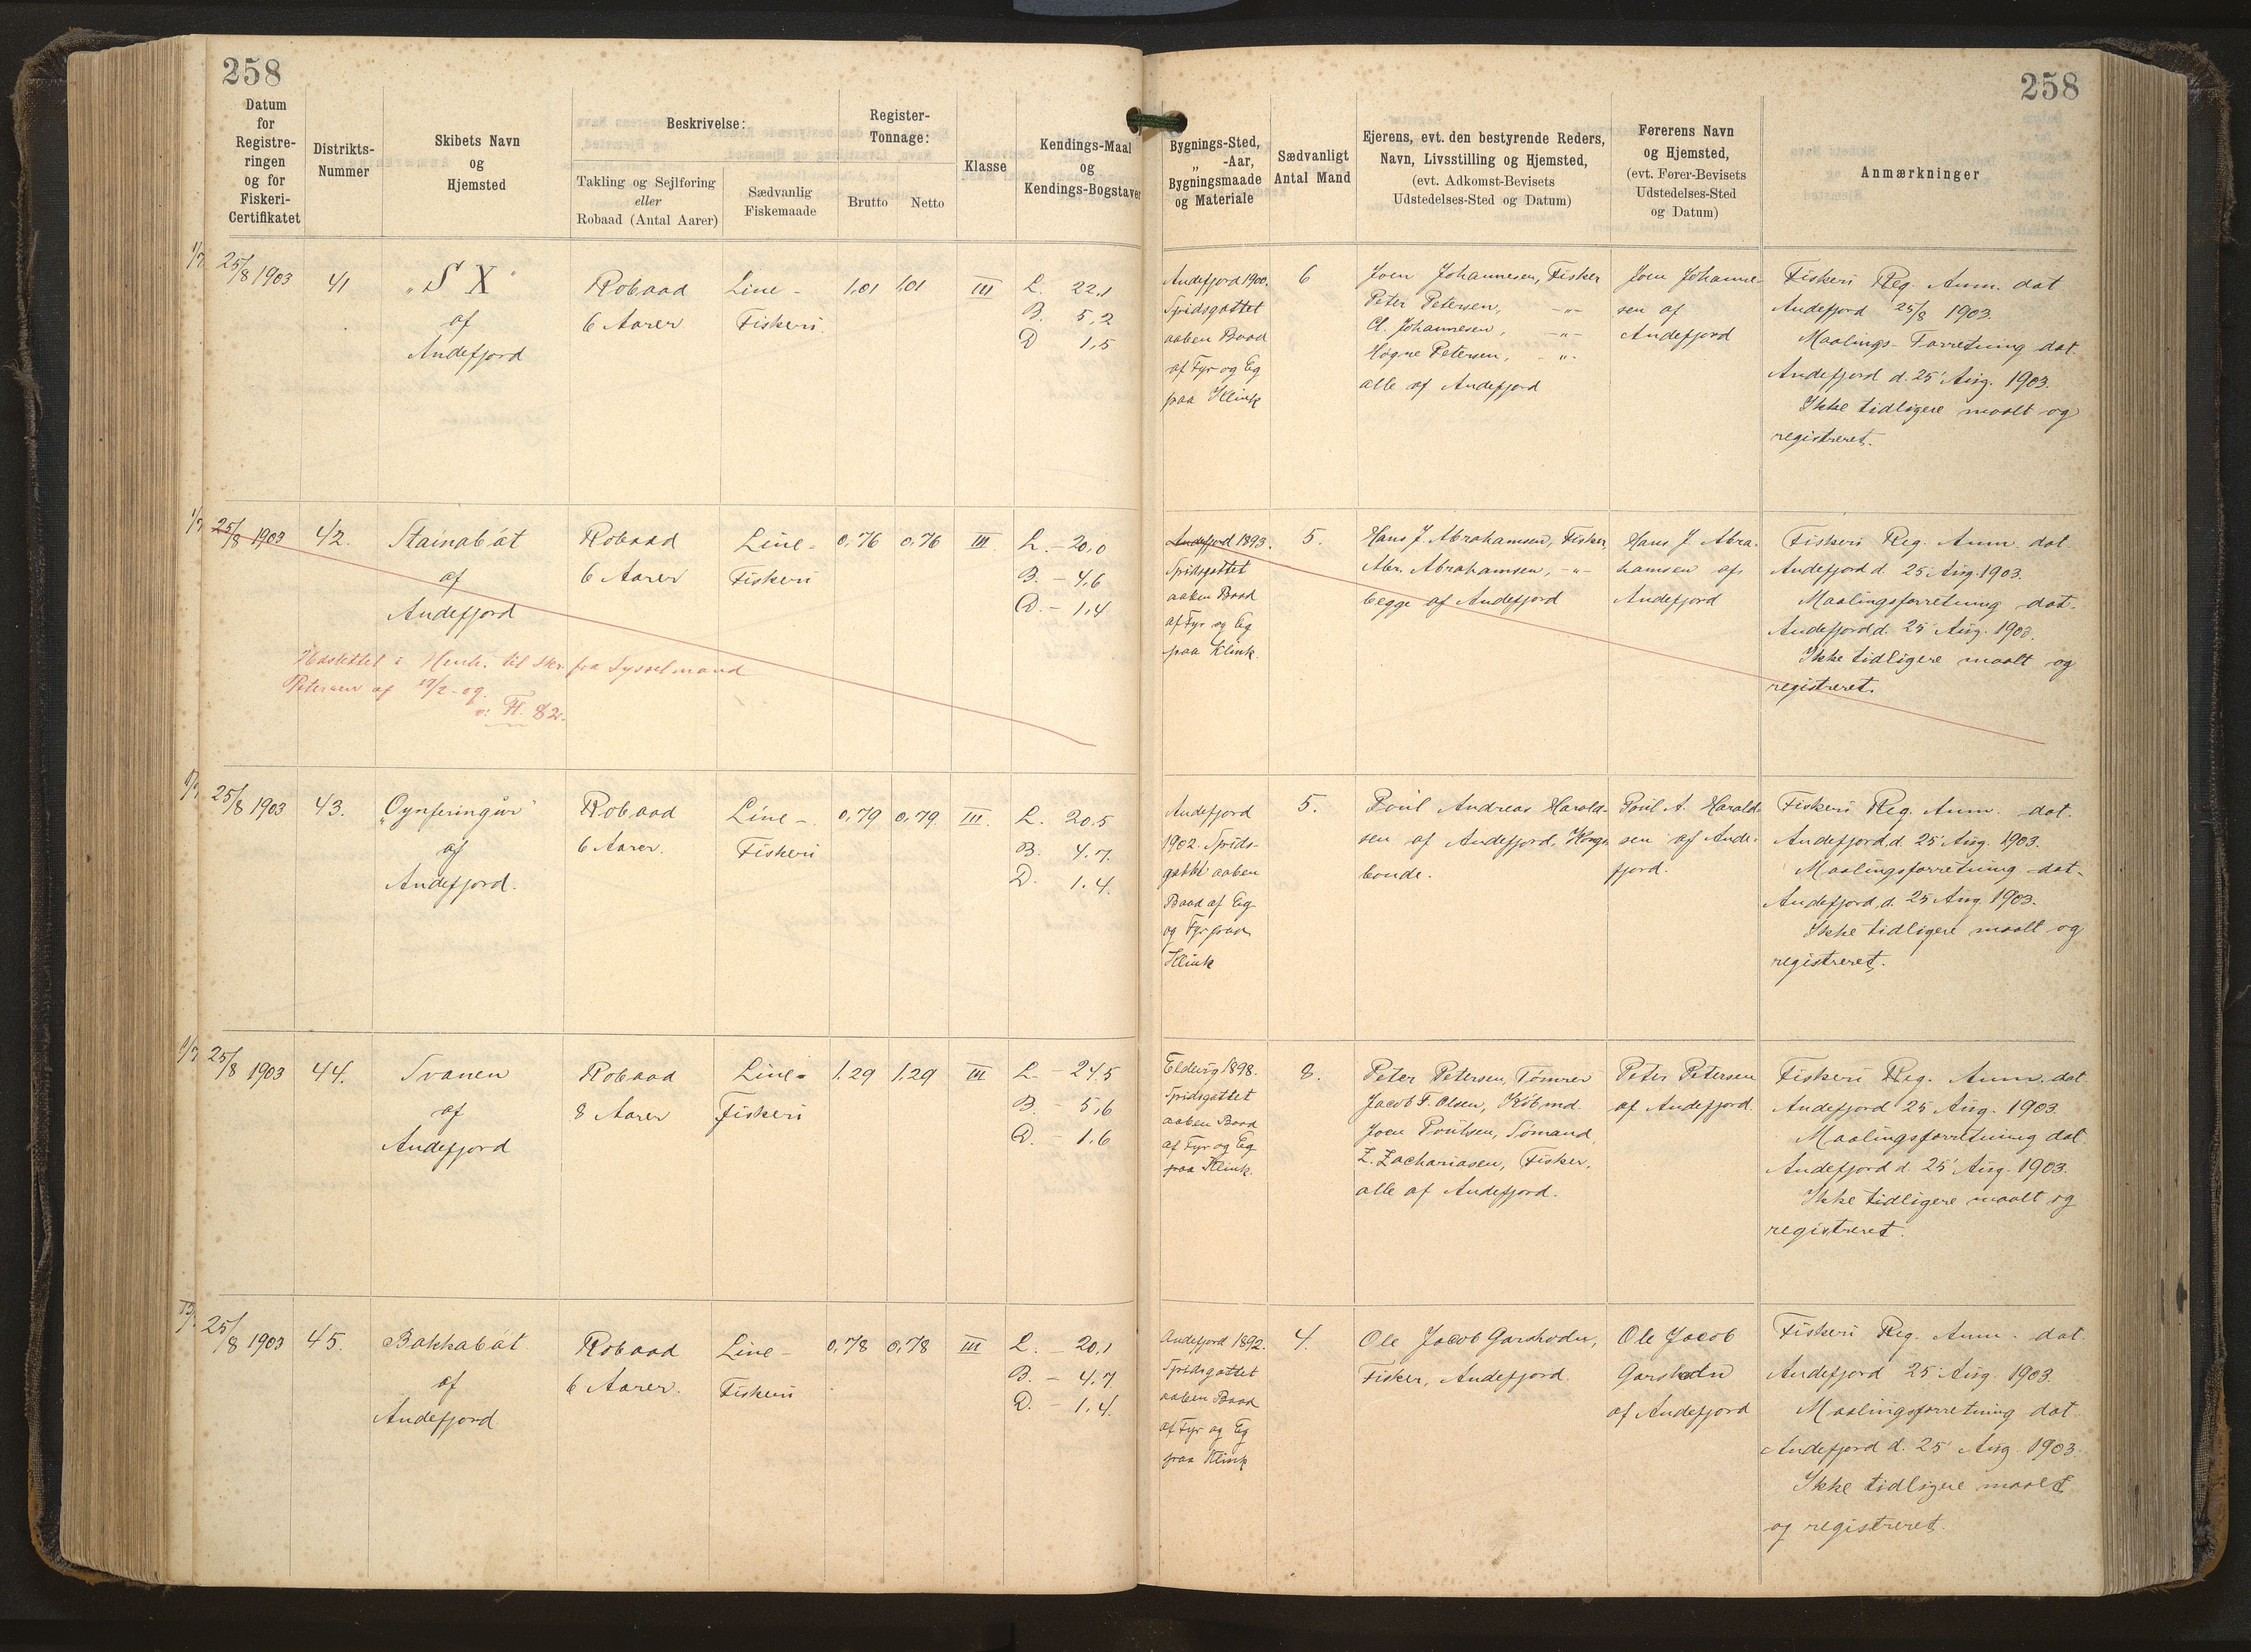 258
258
Datum
for
Registre-
ringen
og for
Fiskeri-
Certifikatet
Distrikts-
Nummer
Skibets Navn
og
Hjemsted
Beskrivelse:
Takling og Sejlføring
eller
Robaad (Antal Aarer)
Sædvanlig
Fiskemaade
Register-
Tonnage:
Brutto
Netto
Klasse
Kendings-Maal
og
Kendings-Bogstaver
Bygnings-Sted,
„ -Aar,
Bygningsmaade
og Materiale
Sædvanligt
Antal Mand
Ejerens, evt. den bestyrende Reders,
Navn, Livsstilling og Hjemsted,
(evt. Adkomst-Bevisets
Udstedelses-Sted og Datum)
Førerens Navn
og Hjemsted,
(evt. Fører-Bevisets
Udstedelses-Sted
og Datum)
Anmærkninger
1/7
25/8 1903
41
„S X"
af
Andefjord
Robaad
6 Aarer
Line-
Fiskeri.
1,01
1,01
III
L. 22,1
B. 5,2
D 1,5
Andefjord 1900.
Spidsgattet
aaben Baad
af Fyr og Eg
paa Klink
6
Joen Johannesen, Fisker
Peter Petersen, -„-
Cl. Johannesen, -„-
Høgne Petersen, -„-
alle af Andefjord
Joen Johanne-
sen af
Andefjord
Fiskeri Reg. Anm. dat
Andefjord 25/8 1903.
Maalings-Forretning dat.
Andefjord d. 25' Aug. 1903.
Ikke tidligere maalt og
registreret.
1/7
25/8 1903
42.
Stainabát
af
Andefjord
Robaad
6 Aarer
Line-
Fiskeri
0,76
0,76
III.
L. - 20,0
B. - 4,6
D. - 1,4
Andefjord 1893.
Spidsgattet
aaben Baad
af Fyr og Eg
paa Klink.
5.
Hans J. Abrahamsen, Fisker,
Abr. Abrahamsen, -„-
begge af Andefjord
Hans J. Abra-
hamsen af
Andefjord
Fiskeri Reg. Anm. dat.
Andefjord d. 25' Aug. 1903.
Maalingsforretning dat.
Andefjord d. 25' Aug. 1903.
Ikke tidligere maalt og
registreret.
Udslettet i Henh. til Skr. fra Sysselmand
Petersen af 19/2-09.
F. 82.
1/7
25/8 1903
43.
„Oynferingur"
af
Andefjord.
Robaad
6 Aarer.
Line-
Fiskeri
0,79
0,79
III.
L. 20,5
B. 4,7.
D. 1,4.
Andefjord
1902. Spids-
gattet aaben
Baad af Eg
og Fyr paa
Klink
5.
Poul Andreas Harald-
sen af Andefjord, Kongs-
bonde.
Poul A. Harald-
sen af Ande-
fjord.
Fiskeri Reg. Anm. dat.
Andefjord d. 25' Aug. 1903.
Maalingsforretning dat.
Andefjord, d. 25' Aug. 1903.
Ikke tidligere maalt og
registreret.
1/7
25/8 1903
44.
Svanen
af
Andefjord
Robaad
8 Aarer
Line-
Fiskeri
1,29
1,29
III
L. - 24,5
B. - 5,6
D. - 1,6
Eldevig 1898.
Spidsgattet
aaben Baad
af Fyr og Eg
paa Klink.
8.
Peter Petersen, Tømrer
Jacob F. Olsen, Købmd.
Joen Poulsen, Sømand,
Z. Zachariasen, Fisker,
alle af Andefjord.
Peter Petersen
af Andefjord.
Fiskeri Reg. Anm. dat.
Andefjord 25' Aug. 1903.
Maalingsforretning dat.
Andefjord d. 25' Aug. 1903.
Ikke tidligere maalt og
registreret.
25/8 1903
45.
Bakkabát
af
Andefjord
Robaad
6 Aarer.
Line-
Fiskeri
0,78
0,78
III
L. - 20,1
B. - 4,7
D. - 1,4.
Andefjord 1892.
Spidsgattet
aaben Baad
af Fyr og Eg
paa Klink
4.
Ole Jacob Garshodn,
Fisker, Andefjord.
Ole Jacob
Garshodn
af Andefjord
Fiskeri Reg. Anm. dat.
Andefjord 25' Aug. 1903.
Maalingsforretning dat.
Andefjord d. 25' Aug. 1903.
Ikke tidligere maalt
og registreret.